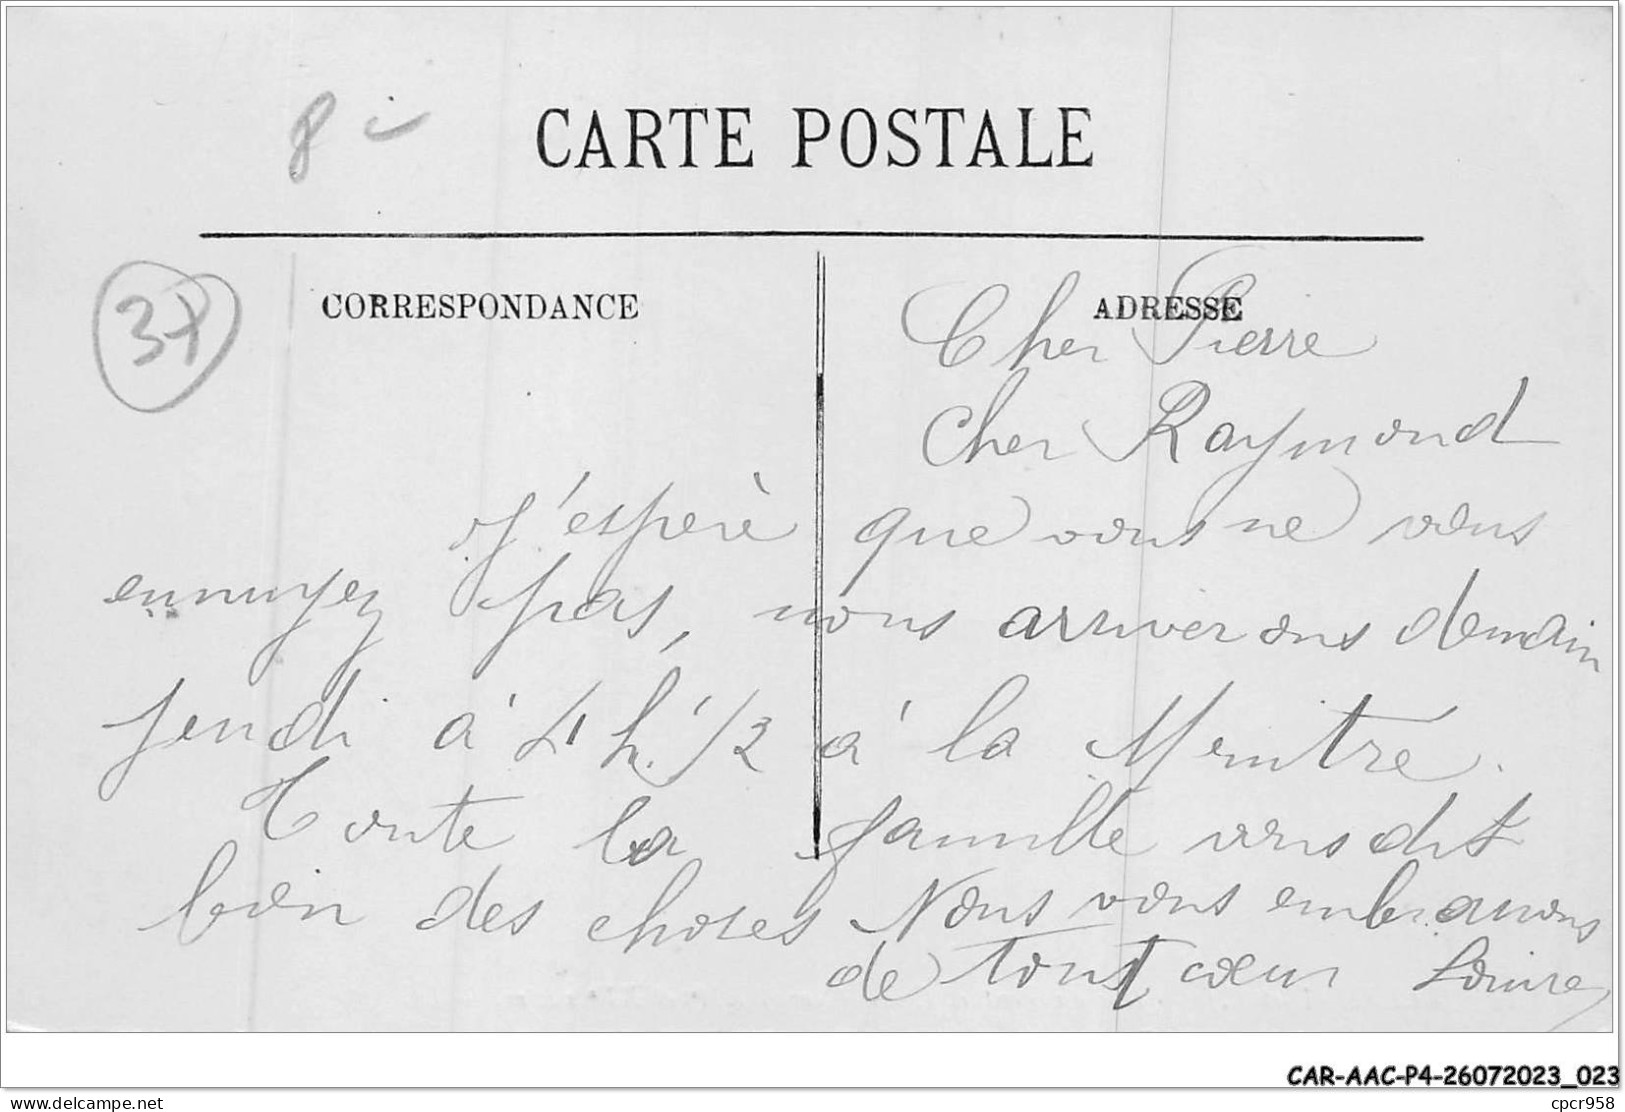 8
CARTE POSTALE
37
CORRESPONDANCE
ADRESSE
Cher Pierre
Cher Raymond
J'espère que vous ne vous
ennuyez pas, nous arriverons demain
jeudi à 4 h. 1/2 à la Menitré.
Toute la famille vous dit
bien des choses Nous vous embrassons
de tout cœur Louise
CAR-AAC-P4-26072023_023
delcampe.net
cpcr958